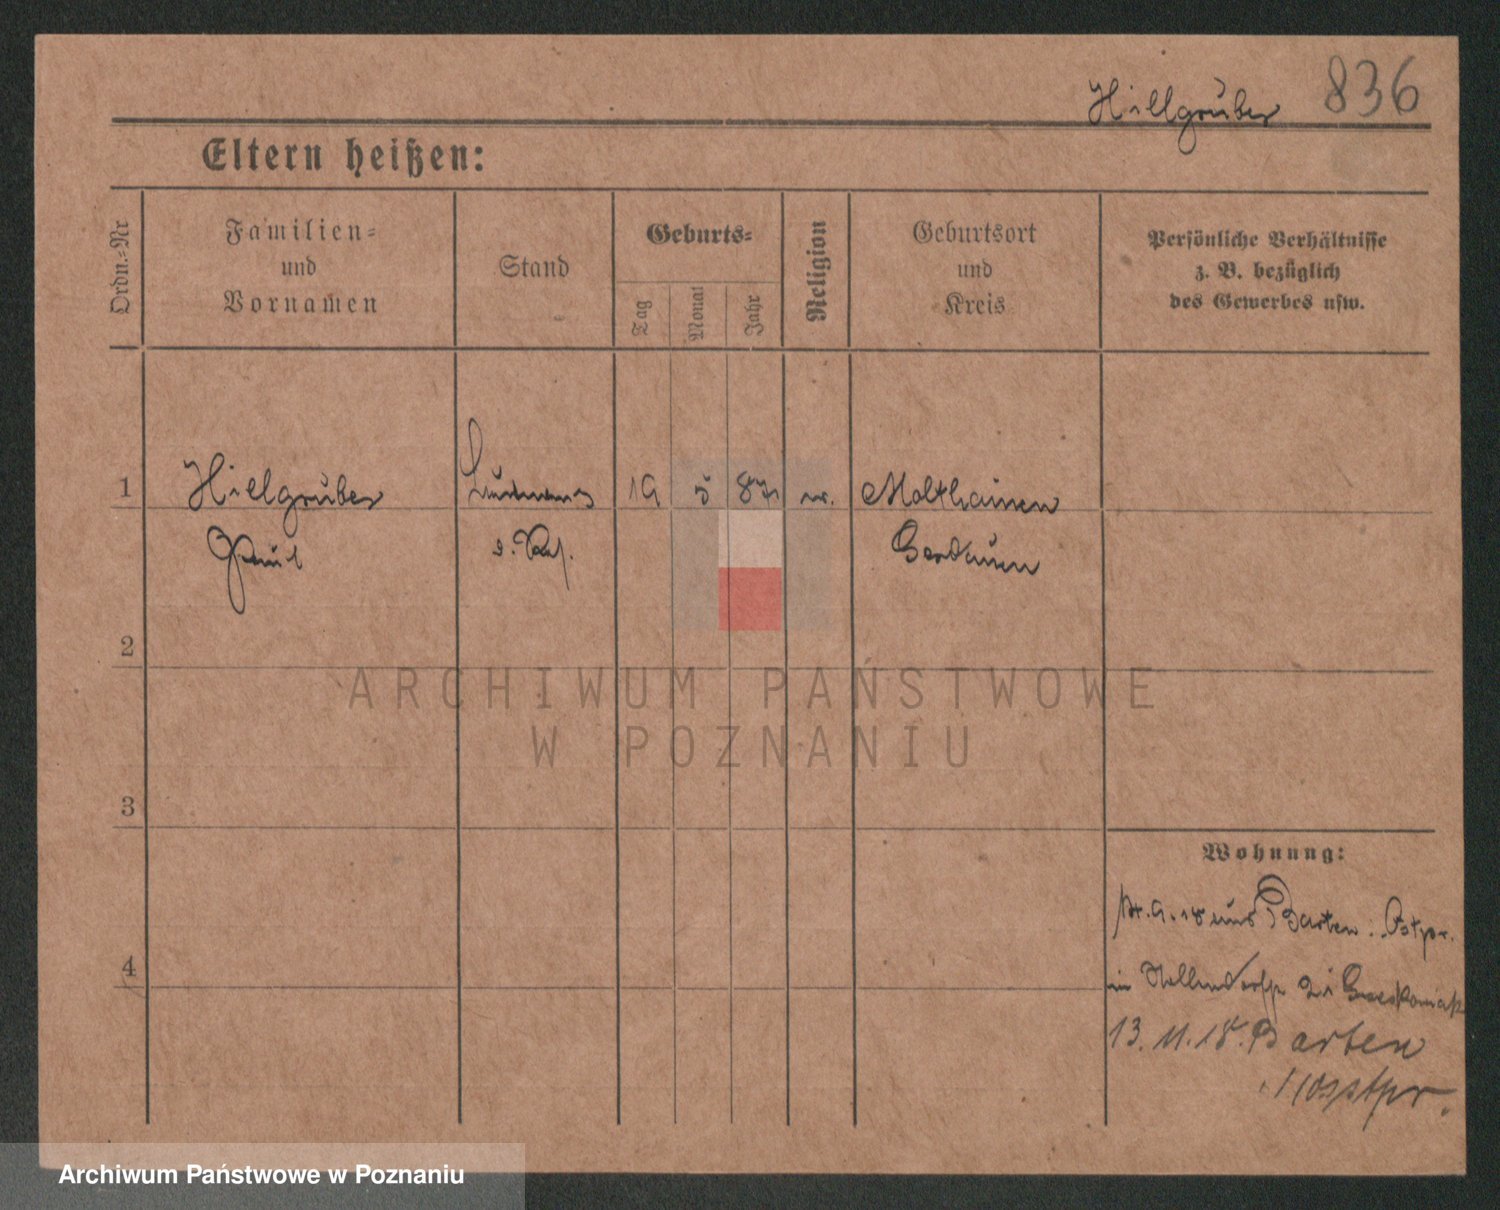 Hillgruber 836
Eltern heißen:
Ordn.-Nr
Familien-
und
Vornamen
Stand
Geburts-
Tag
Monat
Jahr
Religion
Geburtsort
und
Kreis
Persönliche Verhältnisse
z. B. bezüglich
des Gewerbes usw.
1 Hillgruber 19 5 87 Molthainen
Paul Gerdauen
2
ARCHIWUM PAŃSTWOWE
W POZNANIU
3
Wohnung:
Barten Ostpr.
4
in
13.11.18. Barten
Ostpr.
Archiwum Państwowe w Poznaniu